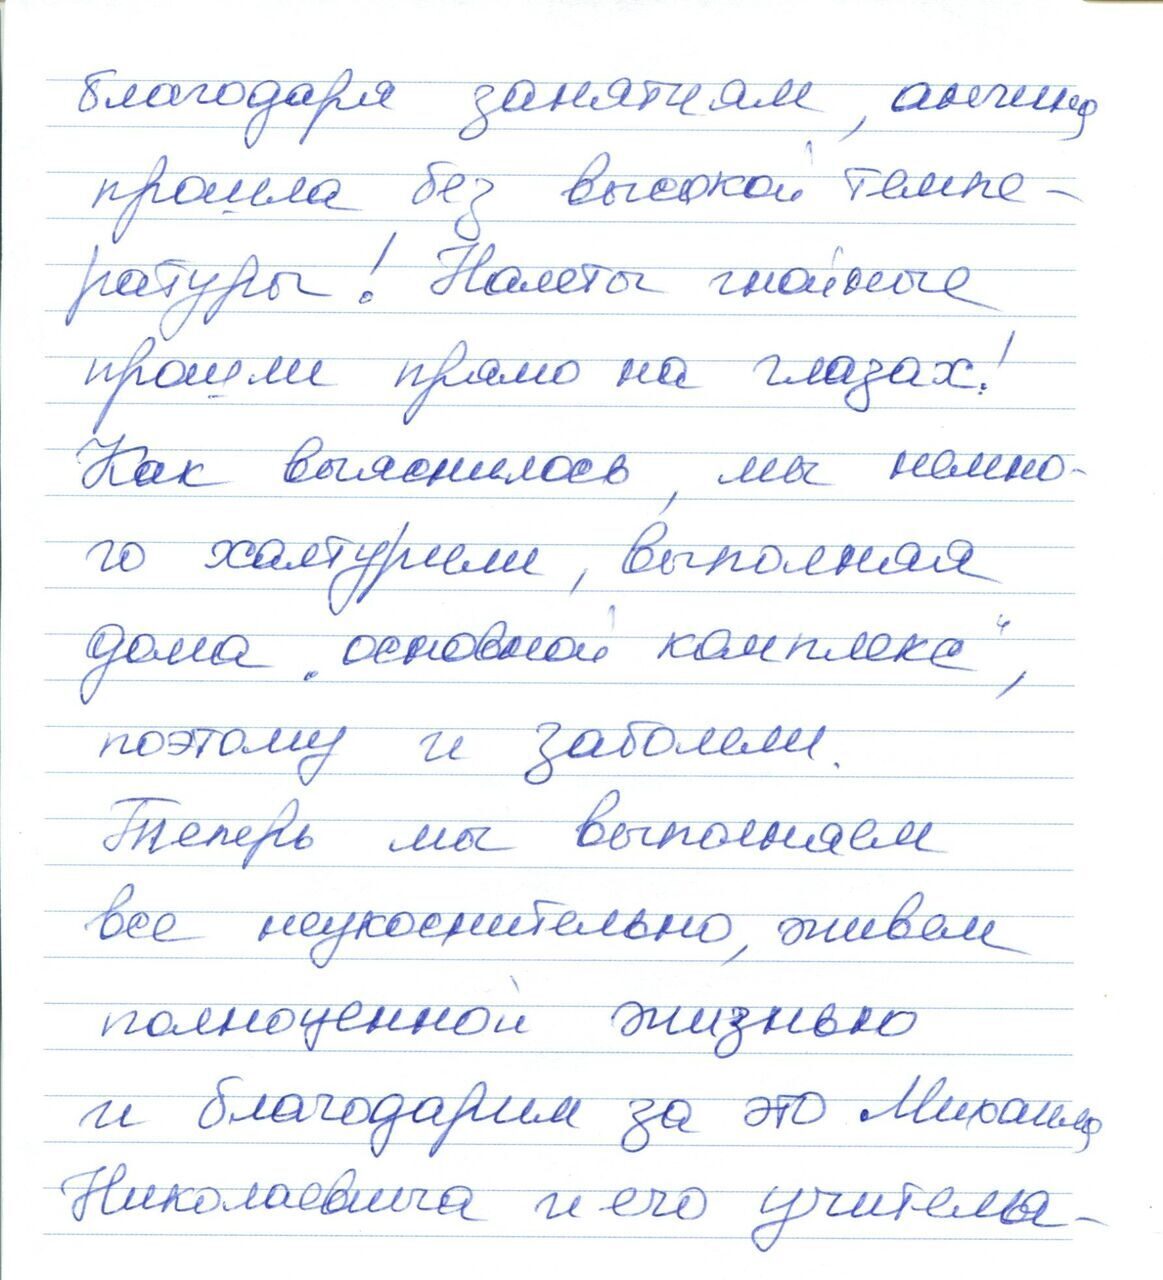 благодаря занятиям, ангина
прошла без высокой темпе-
ратуры! Налеты гнойные
прошли прямо на глазах!
Как выяснилось, мы немно-
го халтурили, выполняя
дома „основной комплекс“,
поэтому и заболели.
Теперь мы выполняем
все неукоснительно, живем
полноценной жизнью
и благодарим за это Михаила
Николаевича и его учитель-